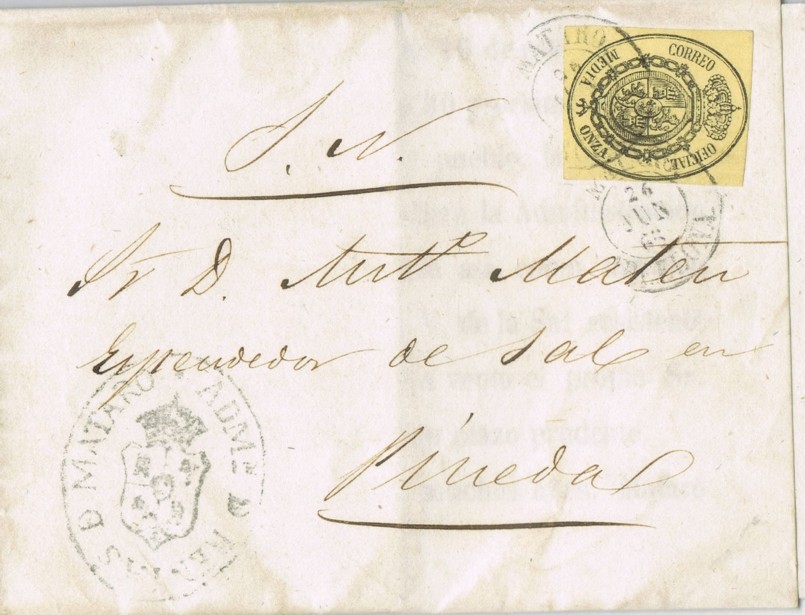 MATARO
CORREO OFICIAL
MEDIA ONZA
26 JUN 65
S. N.
Sr D. Antº Mateu
Espendedor de Sal en
Pineda
ADMN D RENTAS D MATARO